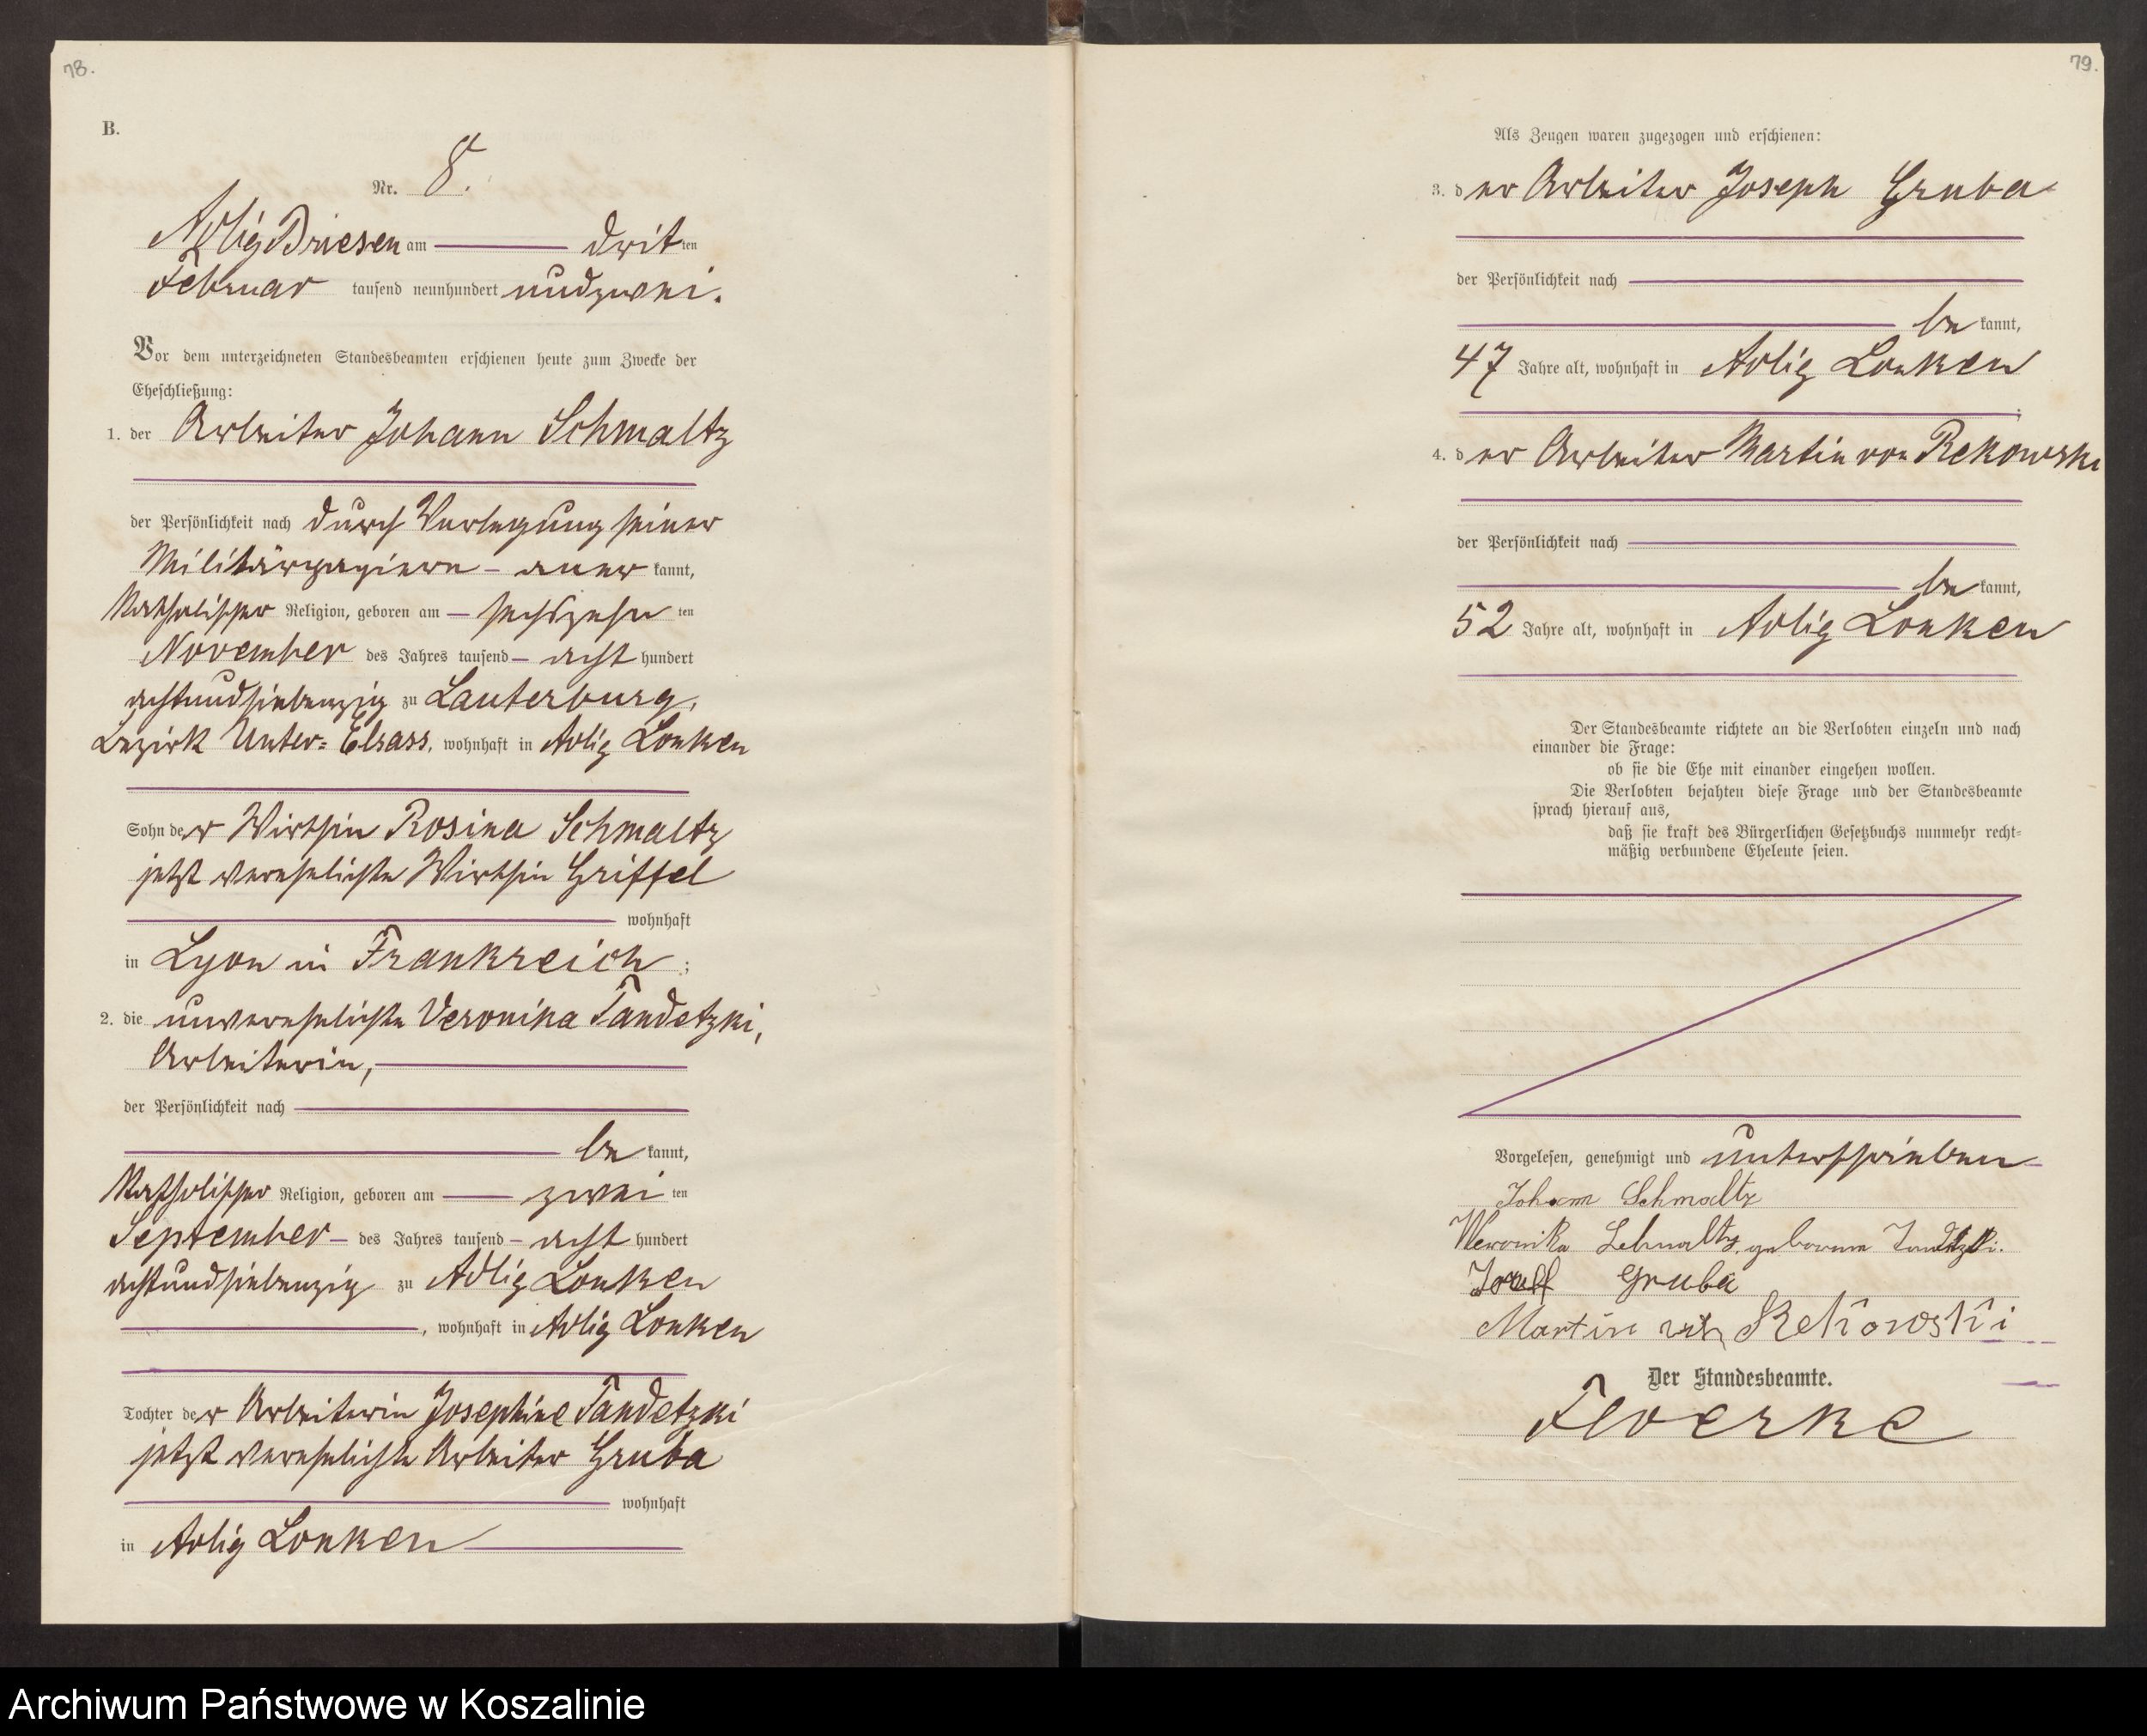 78.
B.
Nr. 8.
Adlig Briesen am drit ten
Februar tausend neunhundert und zwei.
Vor dem unterzeichneten Standesbeamten erschienen heute zum Zwecke der
Eheschließung:
1. der Arbeiter Johann Schmaltz
der Persönlichkeit nach durch Vorlegung seiner
Militärpapiere – aner kannt,
katholischer Religion, geboren am – sechszehn ten
November des Jahres tausend – acht hundert
achtundsiebenzig zu Lauterburg,
Bezirk Unter=Elsass, wohnhaft in Adlig Lonken
Sohn der Wirthin Rosina Schmaltz
jetzt verehelichte Wirthin Griffel
wohnhaft
in Lyon in Frankreich ;
2. die unverehelichte Veronika Tandetzki,
Arbeiterin,
der Persönlichkeit nach
be kannt,
katholischer Religion, geboren am zwei ten
September – des Jahres tausend – acht hundert
achtundsiebenzig zu Adlig Lonken
, wohnhaft in Adlig Lonken
Tochter der Arbeiterin Josephine Tandetzki
jetzt verehelichte Arbeiter Gruba
wohnhaft
in Adlig Lonken
79.
Als Zeugen waren zugezogen und erschienen:
3. der Arbeiter Joseph Gruba
der Persönlichkeit nach
be kannt,
47 Jahre alt, wohnhaft in Adlig Lonken
;
4. der Arbeiter Martin von Rekowski
der Persönlichkeit nach
be kannt,
52 Jahre alt, wohnhaft in Adlig Lonken
Der Standesbeamte richtete an die Verlobten einzeln und nach
einander die Frage:
ob sie die Ehe mit einander eingehen wollen.
Die Verlobten bejahten diese Frage und der Standesbeamte
sprach hierauf aus,
daß sie kraft des Bürgerlichen Gesetzbuchs nunmehr recht=
mäßig verbundene Eheleute seien.
Vorgelesen, genehmigt und unterschrieben
Johann Schmaltz
Weronika Schmaltz geborene Tandetzki.
Gruba
Martin von Rekowski
Der Standesbeamte.
Floerke
Archiwum Państwowe w Koszalinie